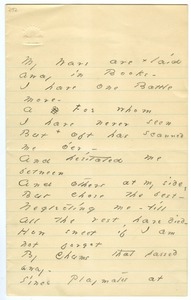 My Wars are laid
away in Books -
I have one Battle
more -
A Foe whom
I have never seen
But oft has scanned
me o'er -
And hesitated me
between
And others at my side,
But chose the best -
Neglecting me - till
All the rest have died -
How sweet if I am
not forgot
By Chums that passed
away -
Since Playmates at